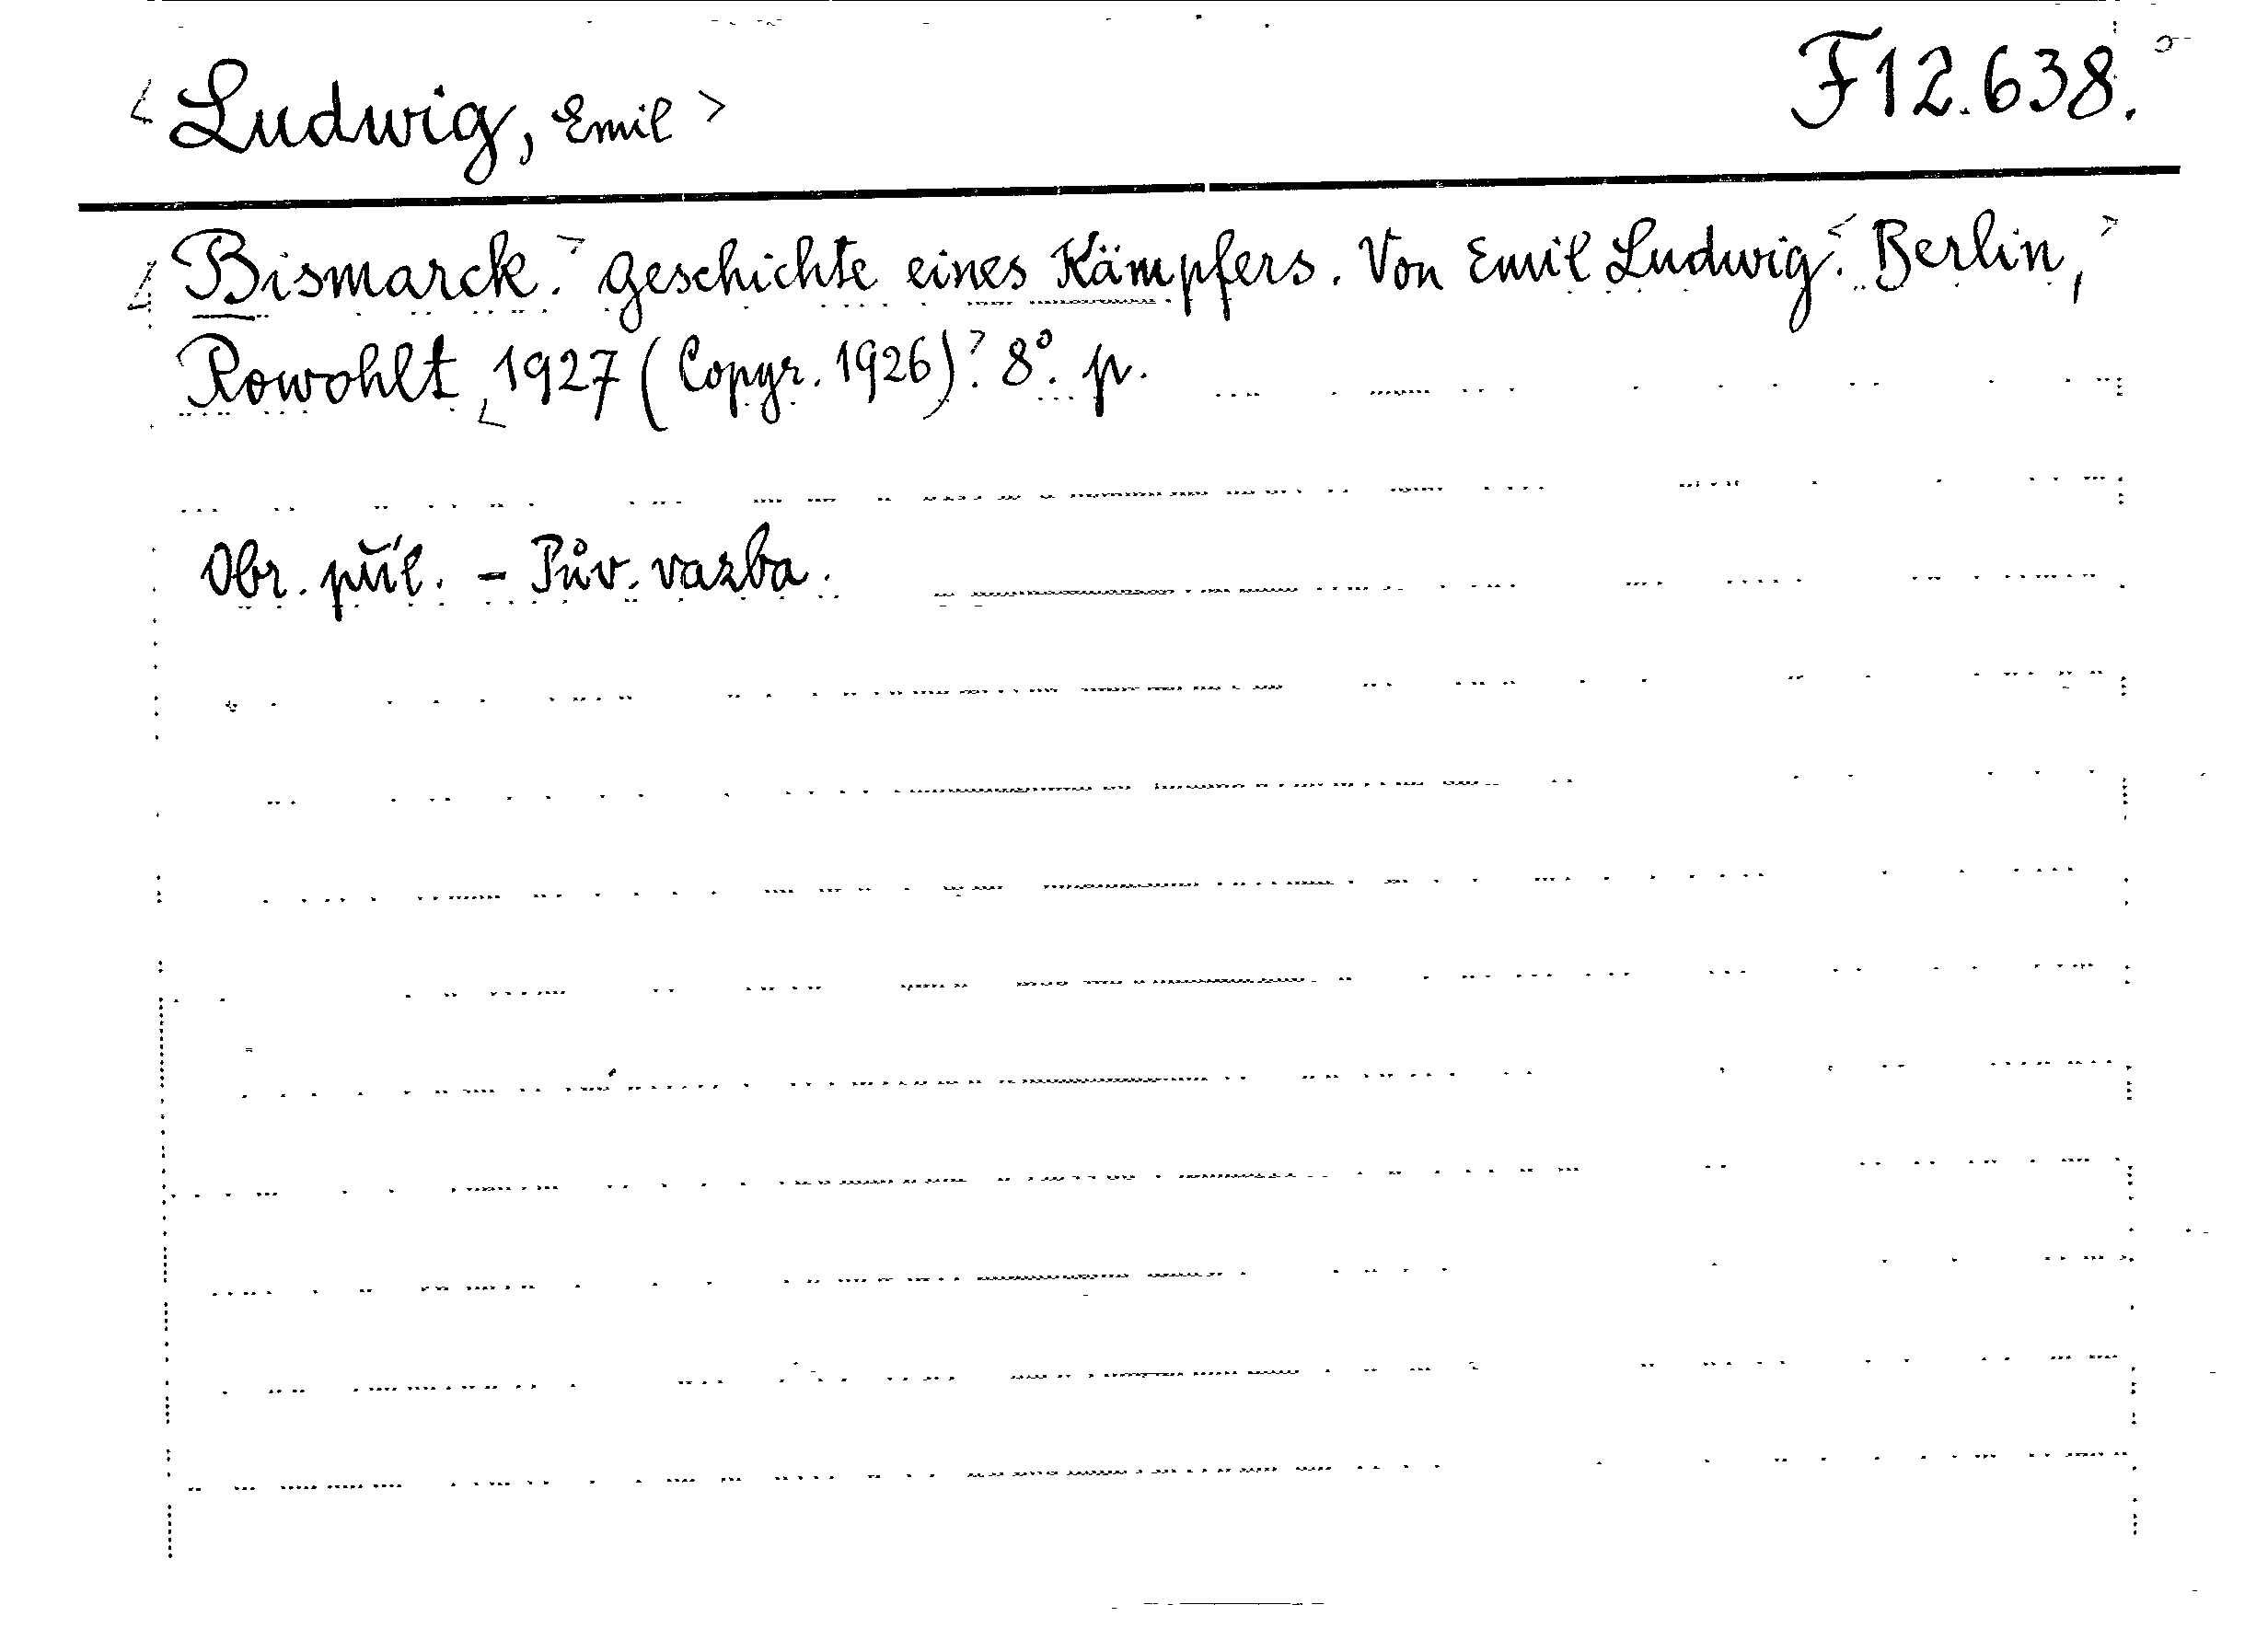 <Ludwig, Emil> F 12.638.
<Bismarck.> Geschichte eines Kämpfers. Von Emil Ludwig. <Berlin,>
Rowohlt, <1927 (Copyr. 1926).> 8°. p.
Obr. příl. - Pův. vazba.